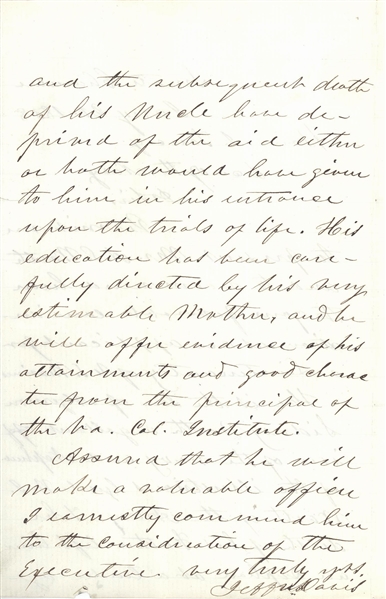 and the subsequent death
of his Uncle have de-
prived of the aid either
or both would have given
to him in his entrance
upon the trials of life. His
education has been care-
fully directed by his very
estimable Mother, and he
will offer evidence of his
attainments and good charac
ter from the principal of
the Va. Col. Institute.
Assured that he will
make a valuable officer
I earnestly commend him
to the consideration of the
Executive. very truly yrs.
Jeffn Davis